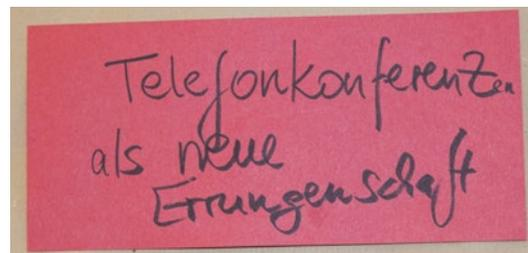 Telefonkonferenzen
als neue
Errungenschaft